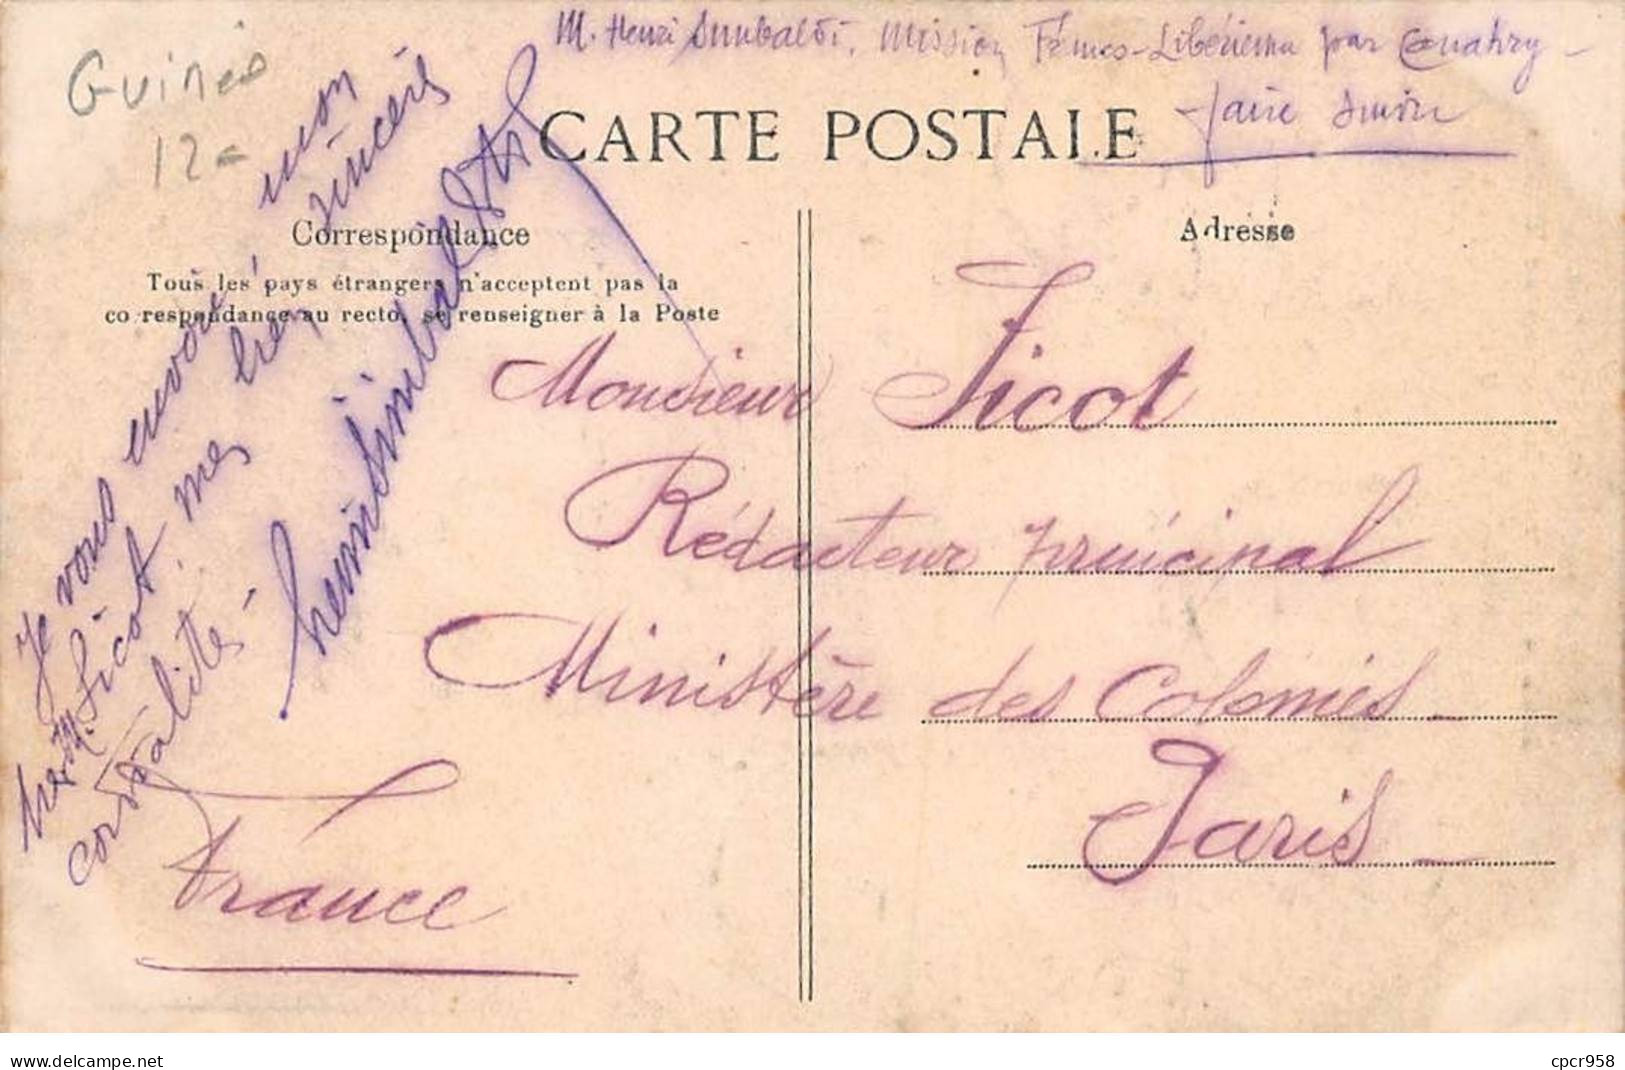 M. Henri Simbaldi. Mission Franco-Libérienne par Conakry -
faire suivre
Guinée
12-
CARTE POSTALE
Correspondance
Tous les pays étrangers n'acceptent pas la
correspondance au recto, se renseigner à la Poste
Adresse
Je vous envoie mon
M. Sicot, mes bien sincères
cordialités -
Henri Simbaldi
Monsieur Sicot
Rédacteur principal
Ministère des Colonies -
Paris -
France
delcampe.net
cpcr958